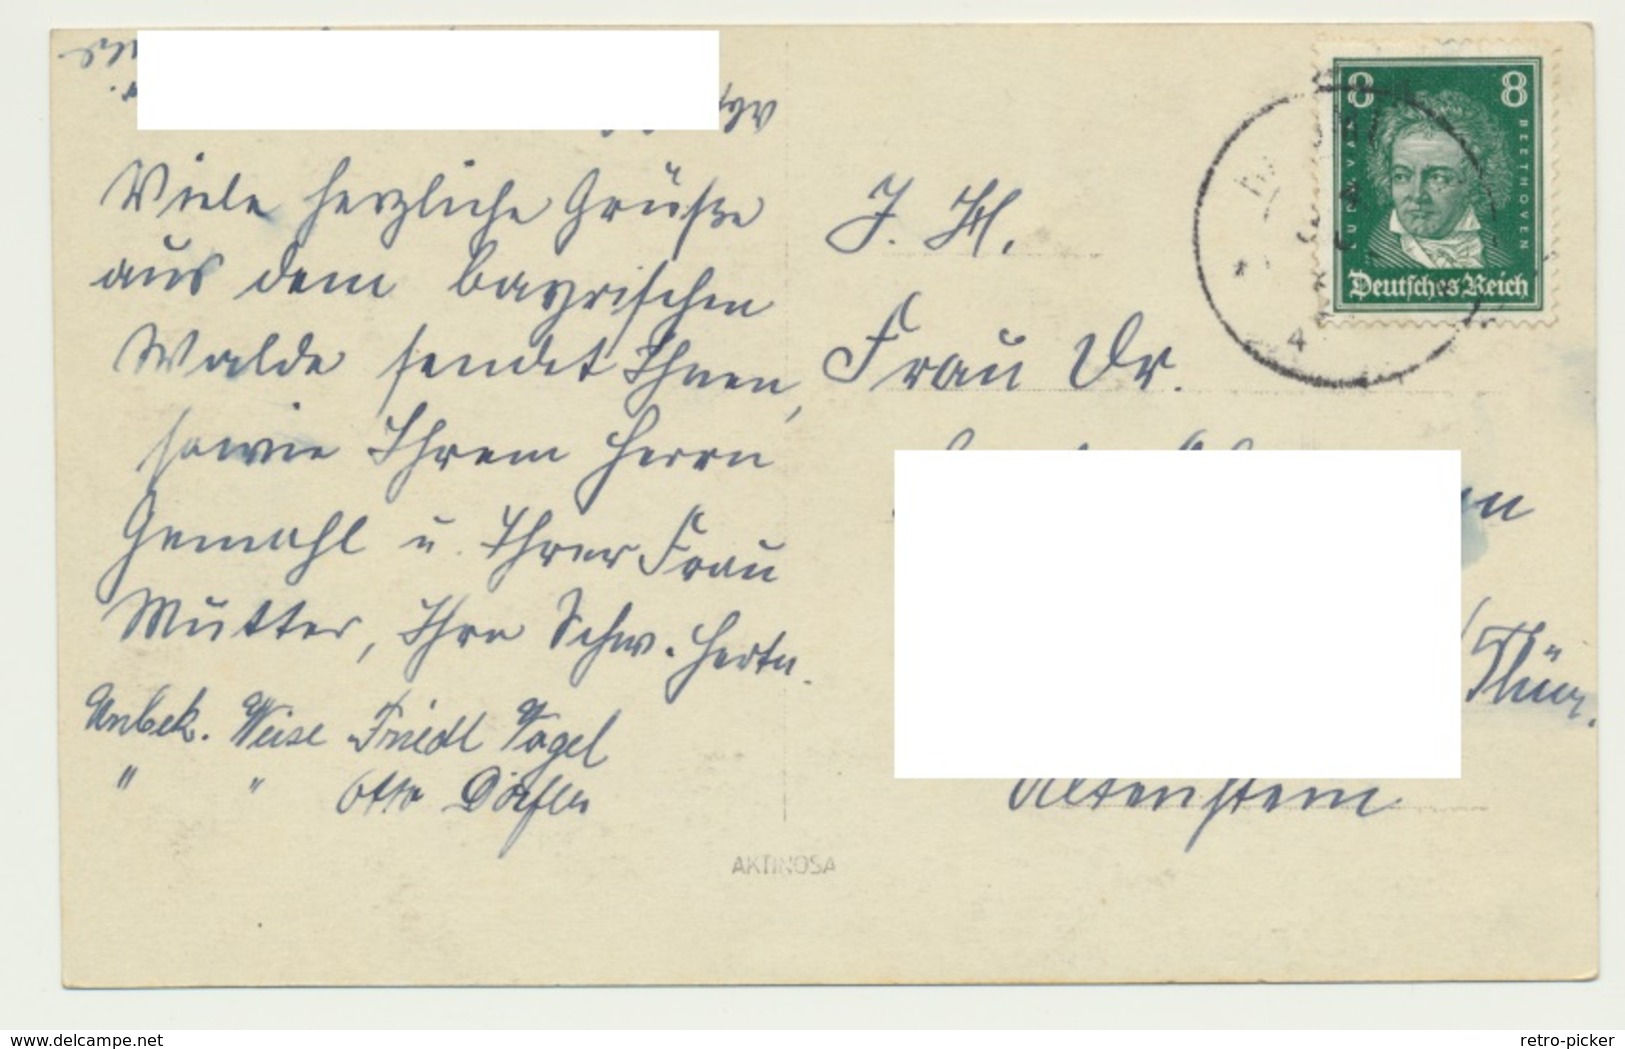 Viele herzliche Grüße
aus dem bayrischen
Walde sendet Ihnen,
sowie Ihrem Herrn
Gemahl u. Ihrer Frau
Mutter, Ihre Schw. Herta.
Unbek. Weise Friedl Vogel
" " Otto Dörfler
AKTINOSA
J. H.
Frau Dr.
/Thür.
Altenstein
8 8
LUDW. VAN BEETHOVEN
Deutsches Reich
www.delcampe.net
retro-picker